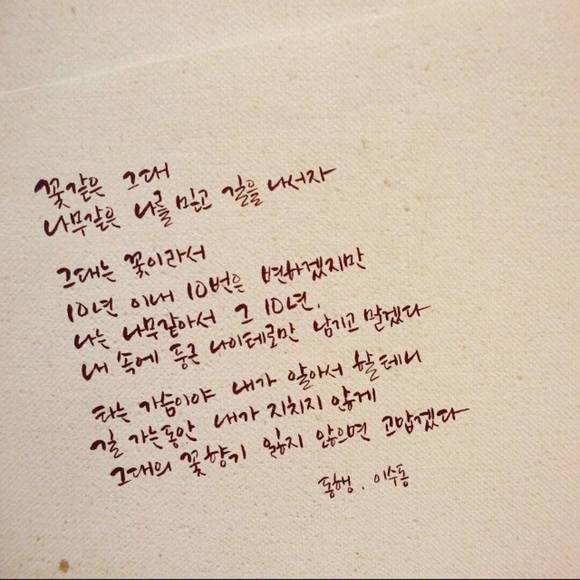 꽃같은 그대
나무같은 나를 믿고 길을 나서자
그대는 꽃이라서
10년 이내 10번은 변하겠지만
나는 나무같아서 그 10년,
내 속에 둥근 나이테로만 남기고 말겠다
타는 가슴이야 내가 알아서 할테니
길 가는동안 내가 지치지 않게
그대의 꽃향기 잃지 않으면 고맙겠다
동행. 이수동